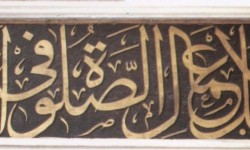 الاعمال الصَّلوة فى